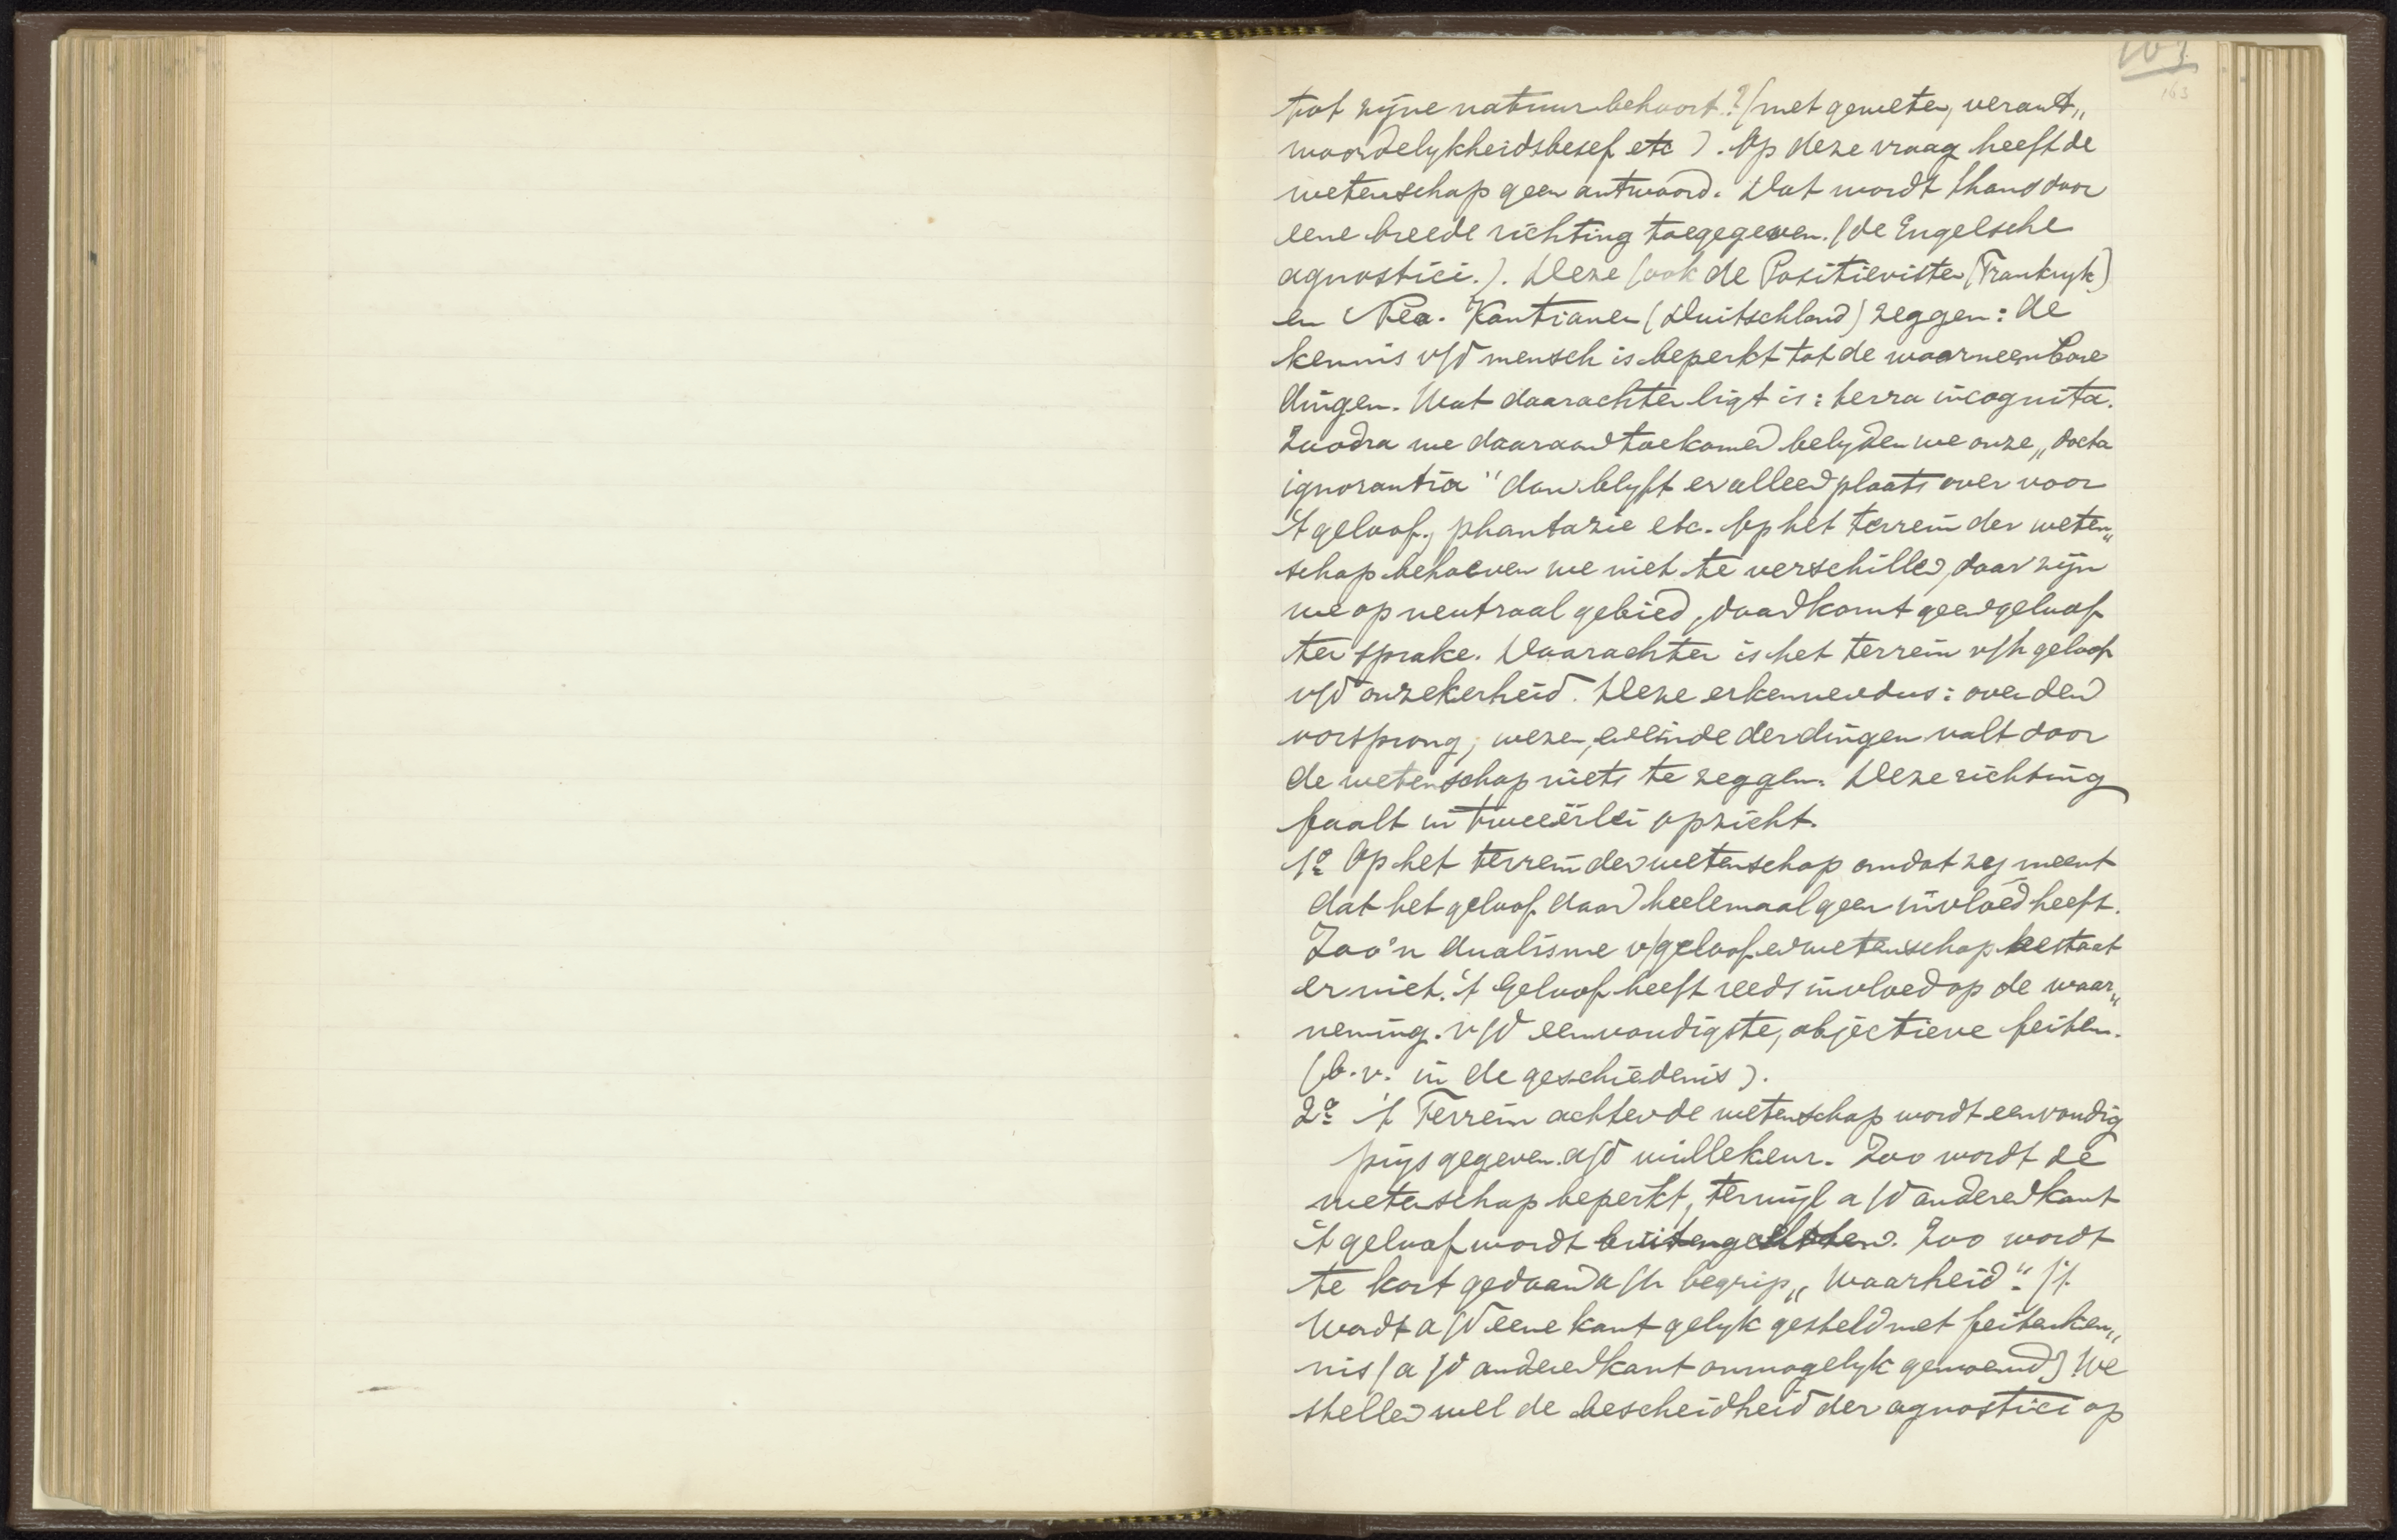 163
163
tot zijne natuur behoort? (met geweten, verant„
woordelykheidsbesef etc). Op deze vraag heeft de
wetenschap geen antwoord. Dat wordt thans door
eene breede richting toegegeven. (de Engelsche
agnostici.). Deze (ook de Positievisten (Frankryk)
en Neo-Kantianen (Duitschland) zeggen: de
kennis v/d mensch is beperkt tot de waarneembare
dingen. Wat daarachter ligt is: terra incognita.
Zoodra we daaraan toekomen belyden we onze „docta
ignorantia" dan blyft er alleen plaats over voor
't geloof, phantazie etc. Op het terrein der weten„
schap behoeven we niet te verschillen, daar zijn
we op neutraal gebied, daar komt geen geloof
ter sprake. Daarachter is het terrein v/h geloof
v/d onzekerheid. Deze erkennen dus: over den
oorsprong, wezen, en einde der dingen valt door
de wetenschap niets te zeggen. Deze richting
faalt in tweeërlei opzicht.
1º Op het terrein der wetenschap omdat zij meent
dat het geloof daar heelemaal geen invloed heeft.
Zoo'n dualisme v/geloof en wetenschap bestaat
er niet. 't Geloof heeft reeds invloed op de waar„
neming v/d eenvoudigste, objectieve feiten.
(b.v. in de geschiedenis).
2º 't Terrein achter de wetenschap wordt eenvoudig
prijs gegeven a/d willekeur. Zoo wordt de
wetenschap beperkt, terwijl a/d anderen kant
't geloof wordt buitengesloten. Zoo wordt
te kort gedaan a/h begrip „Waarheid". ('t
Wordt a/d eene kant gelyk gesteld met feitenken„
nis (a/d anderen kant onmogelyk genoemd) We
stellen wel de bescheidheid der agnostici op